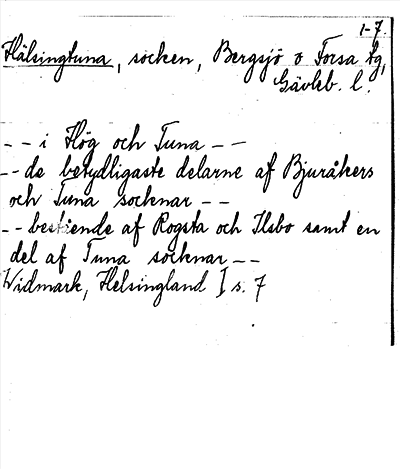 1-7.
Hälsingtuna, socken, Bergsjö o Forsa tg,
Gävleb. l.
-- i Hög och Tuna --
-- de betydligaste delarne af Bjuråkers
och Tuna socknar --
-- bestående af Rogsta och Ilsbo samt en
del af Tuna socknar --
Widmark, Helsingland I s. 7